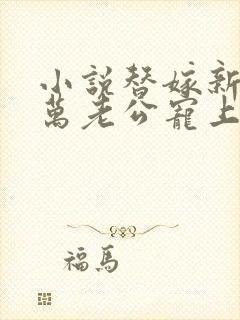 小説替嫁新
萬老公寵上
福馬